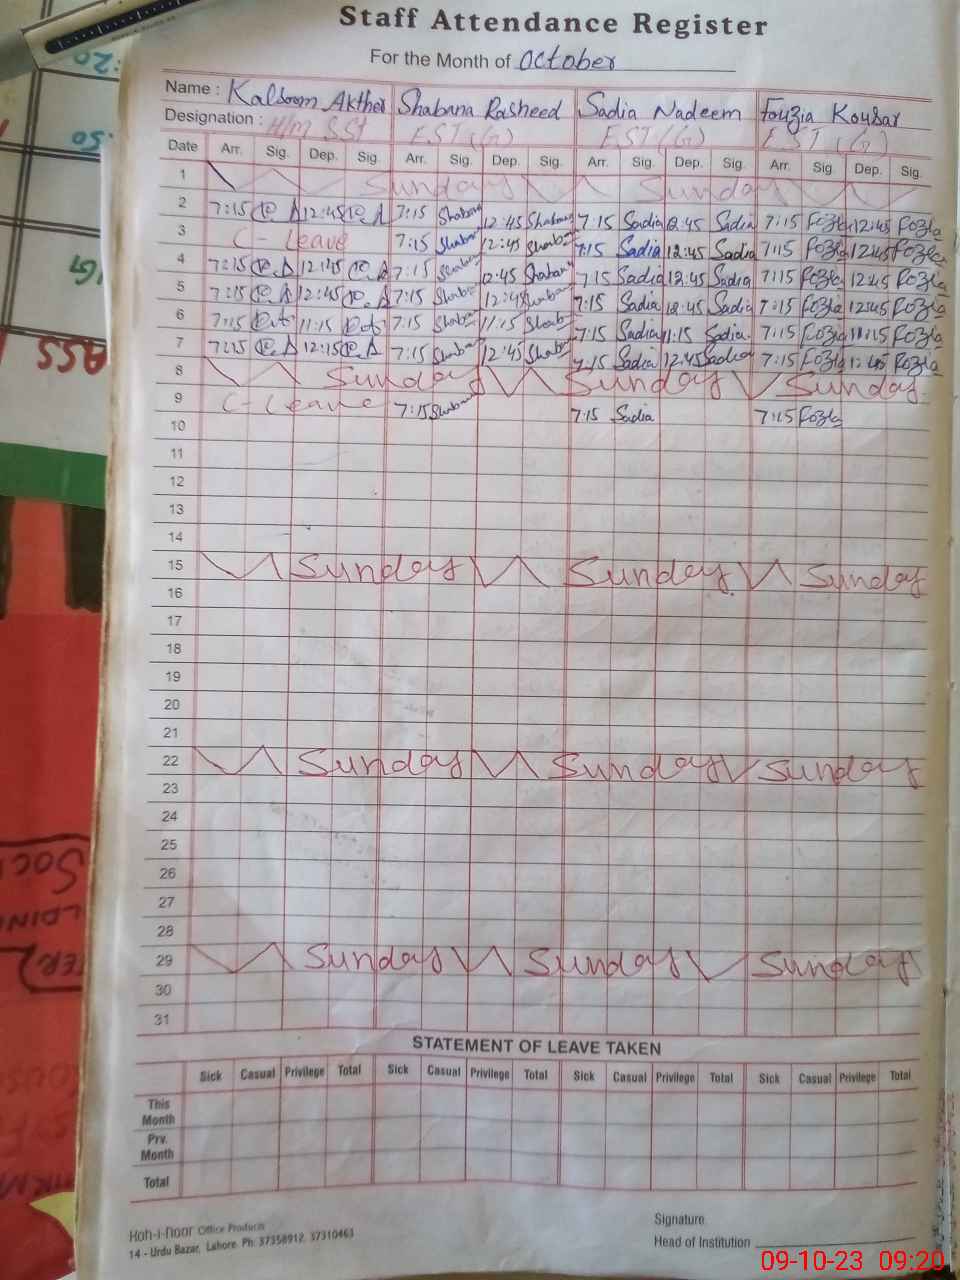 Staff Attendance Register
For the Month of October
Name : Kalsoom Akther Shabana Rasheed Sadia Nadeem Fouzia Kousar
Designation : H/M SST EST (G) EST (G) EST (G)
Date Arr. Sig. Dep. Sig. Arr. Sig. Dep. Sig. Arr. Sig. Dep. Sig. Arr. Sig. Dep. Sig.
1 Sunday Sunday
2 7:15 12:45 7:15 Shabana 12:45 Shabana 7:15 Sadia 12:45 Sadia 7:15 Fozia 12:45 Fozia
3 C-Leave 7:15 Shabana 12:45 Shabana 7:15 Sadia 12:45 Sadia 7:15 Fozia 12:45 Fozia
4 7:15 12:45 7:15 Shabana 12:45 Shabana 7:15 Sadia 12:45 Sadia 7:15 Fozia 12:45 Fozia
5 7:15 12:45 7:15 Shabana 12:45 Shabana 7:15 Sadia 12:45 Sadia 7:15 Fozia 12:45 Fozia
6 7:15 11:15 7:15 Shabana 11:15 Shabana 7:15 Sadia 11:15 Sadia 7:15 Fozia 11:15 Fozia
7 7:15 12:15 7:15 Shabana 12:45 Shabana 7:15 Sadia 12:45 Sadia 7:15 Fozia 12:45 Fozia
8 Sunday Sunday Sunday
9 C-Leave 7:15 Shabana 7:15 Sadia 7:15 Fozia
10
11
12
13
14
15 Sunday Sunday Sunday
16
17
18
19
20
21
22 Sunday Sunday Sunday
23
24
25
26
27
28
29 Sunday Sunday Sunday
30
31
STATEMENT OF LEAVE TAKEN
Sick Casual Privilege Total Sick Casual Privilege Total Sick Casual Privilege Total Sick Casual Privilege Total
This Month
Prv. Month
Total
Koh-i-noor Office Products
14 - Urdu Bazar, Lahore. Ph: 37358912, 37310463
Signature
Head of Institution
09-10-23 09:20